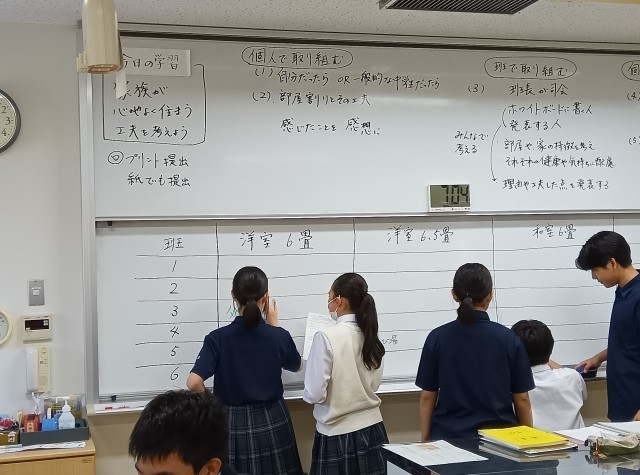 今日の学習
家族が
心地よく住まう
工夫を考えよう
◎プリント提出
紙でも提出
個人で取り組む
(1) 自分だったら OR 一般的な中学生だったら
(2) 部屋割りとその工夫
感じたことを 感想に
班で取り組む
(3) 班長が司会
ホワイトボードに書く人
発表する人
みんなで
考える
部屋や、家の特徴を考え
それぞれの健康や気持ちに配慮
理由や工夫した点を発表する
7:04
班
洋室 6畳
洋室 6.5畳
和室 6畳
1
2
3
4
5
6